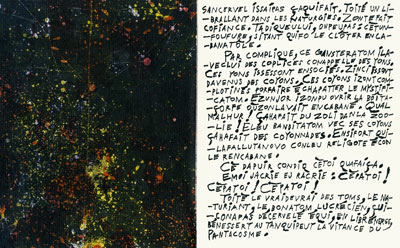 SANCERVEL ISSAIPAS CAQUIFAIT. TOITÉ UN LI-
BRALLANT DANS LES NATURGIES. ZONTEFAIT
COFIANCE. TADIQUELUI, ONPEUPASSCÉTON-
FOUFURE, SITANT QUIEO LE CLOTER ENCA-
BANATOLE.
PAR COMPLIQUE, CE GAUVSTERATOM ILA-
VECLUI DES COPLICES CONAPPELLE DES YONS,
CES YONS ISSESONT ENSOCIÉS. ZINCI ISSONT
DAVENUS DES COYONS. CES COYONS IZONTCOM-
PLOTINÉS PORFAIRE ÉCHAPATIER LE MYSTIFI-
CATOM. EZUNJOR IZONPU OVRIR LA BOITA-
CORPE OUZONLAVAIT ENCABANE. QUAL
MALHUR! GAHAFAIT DU ZOLI DANLA ZOO-
LIE! ELEU BANDITATOM VEC SES COYONS
GAHAFAIT DES COYONNADES. ENSIFORT QUI-
LAFALLUTANOVO CONLEU RELIGOTE ÉCON
LE RENCABANE.
CE DAPUIR CONDIQ CÉTOI QUAFAIÇA.
EMOI JACRIE EJ RACRIE: CÉPATOI!
CÉPATOI! CÉPATOI!
TOITÉ LE VRAIDEVRAI DES TOMS, LE NA-
TURIANT, LE BONATOM LUCRECIEN, QUI-
SONAPAS DECERVELÉ EQUI, EN LIBRÉNERGIE,
BENESSERT AU TANQUIPEUT LA VITANCE DU
PANTACOSME.